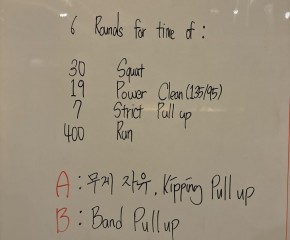 6 Rounds for time of :
30 Squat
19 Power Clean (135/95)
7 Strict Pull up
400 Run
A : 무게 자유, Kipping Pull up
B : Band Pull up